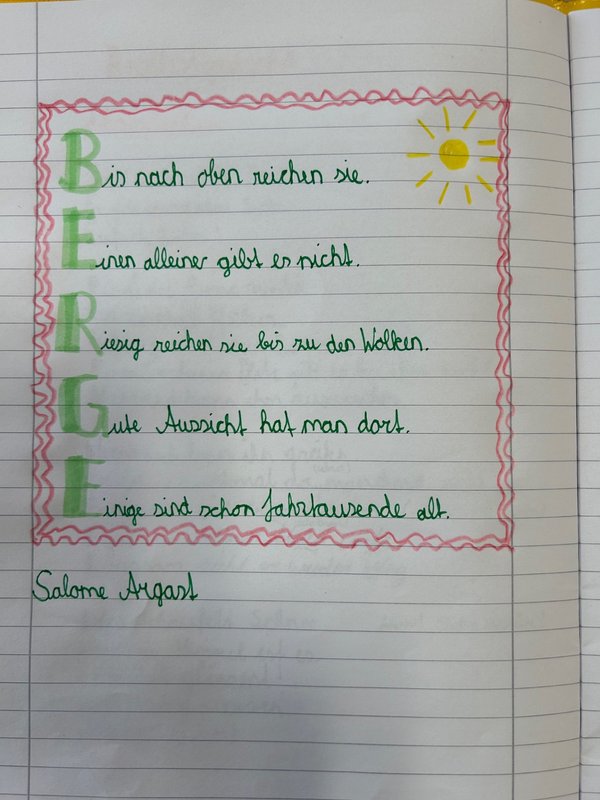 Bis nach oben reichen sie.
Einen alleiner gibt es nicht.
Riesig reichen sie bis zu den Wolken.
Gute Aussicht hat man dort.
Einige sind schon Jahrtausende alt.
Salome Argast